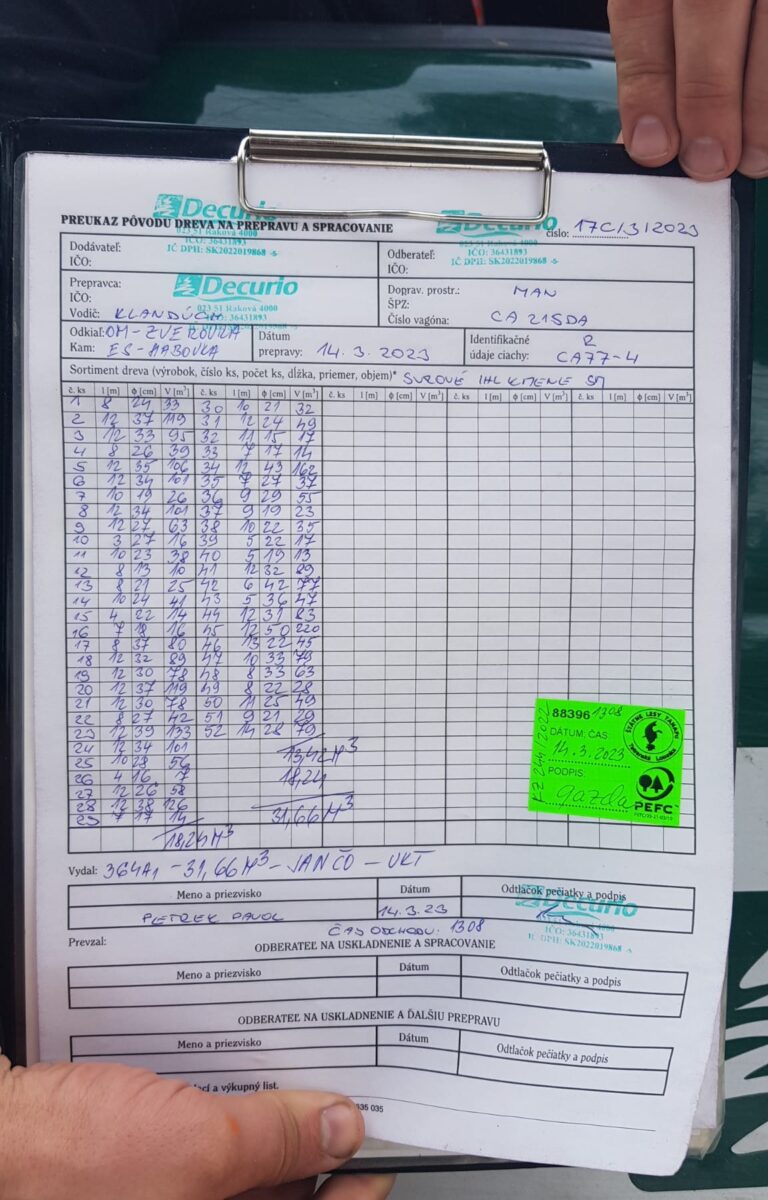 Decurio
Decurio
PREUKAZ PÔVODU DREVA NA PREPRAVU A SPRACOVANIE
číslo: 17C/3/2023
023 51 Raková 4000
IČO: 36431893
IČ DPH: SK2022019868
IČO: 36431893
IČ DPH: SK2022019868
Dodávateľ:
IČO:
Odberateľ:
IČO:
Prepravca:
IČO:
Decurio
023 51 Raková 4000
IČO: 36431893
Vodič:
Doprav. prostr.: MAN
ŠPZ:
Číslo vagóna: CA 215DA
Odkiaľ: OM-ZVEROVKA
Kam: ES-HABOVKA
Dátum
prepravy: 14. 3. 2023
Identifikačné R
údaje ciachy: CA77-4
Sortiment dreva (výrobok, číslo ks, počet ks, dĺžka, priemer, objem)* SUROVÉ IHL KMENE SM
č. ks l [m] ϕ [cm] V [m³] č. ks l [m] ϕ [cm] V [m³] č. ks l [m] ϕ [cm] V [m³] č. ks l [m] ϕ [cm] V [m³] č. ks l [m] ϕ [cm] V [m³]
1 8 24 33 30 10 21 32
2 12 37 119 31 12 24 49
3 12 33 95 32 11 15 17
4 8 26 39 33 7 17 14
5 12 35 106 34 12 43 162
6 12 34 101 35 7 27 37
7 10 19 26 36 9 29 55
8 12 34 101 37 9 19 23
9 12 27 63 38 10 22 35
10 3 27 16 39 5 22 17
11 10 23 38 40 5 19 13
12 8 13 10 41 12 32 89
13 8 21 25 42 6 42 77
14 10 24 41 43 5 36 47
15 4 22 14 44 12 31 83
16 7 18 16 45 12 50 220
17 8 37 80 46 13 22 45
18 12 32 89 47 10 33 79
19 12 30 78 48 8 33 63
20 12 37 119 49 8 22 28
21 12 30 78 50 11 25 49
22 8 27 42 51 9 21 29
23 12 39 133 52 14 28 79
24 12 34 101 13,42 M³
25 10 28 56 18,24
26 4 16 7
27 12 26 58 31,66 M³
28 12 38 126
29 7 17 14
18,24 M³
88396 1308
DÁTUM: ČAS:
14.3.2023
PODPIS:
gazda
ŠTÁTNE LESY TANAPU
Tatranská Lomnica
PEFC
Vydal: 364A1 - 31,66 M³ - JANČO - VKT
Meno a priezvisko Dátum Odtlačok pečiatky a podpis
PETREK PAVOL 14.3.23
Decurio
023 51 Raková 4000
IČO: 36431893
IČ DPH: SK2022019868
ČAS ODCHODU: 1308
Prevzal:
ODBERATEĽ NA USKLADNENIE A SPRACOVANIE
Meno a priezvisko Dátum Odtlačok pečiatky a podpis
ODBERATEĽ NA USKLADNENIE A ĎALŠIU PREPRAVU
Meno a priezvisko Dátum Odtlačok pečiatky a podpis
a výkupný list.
035